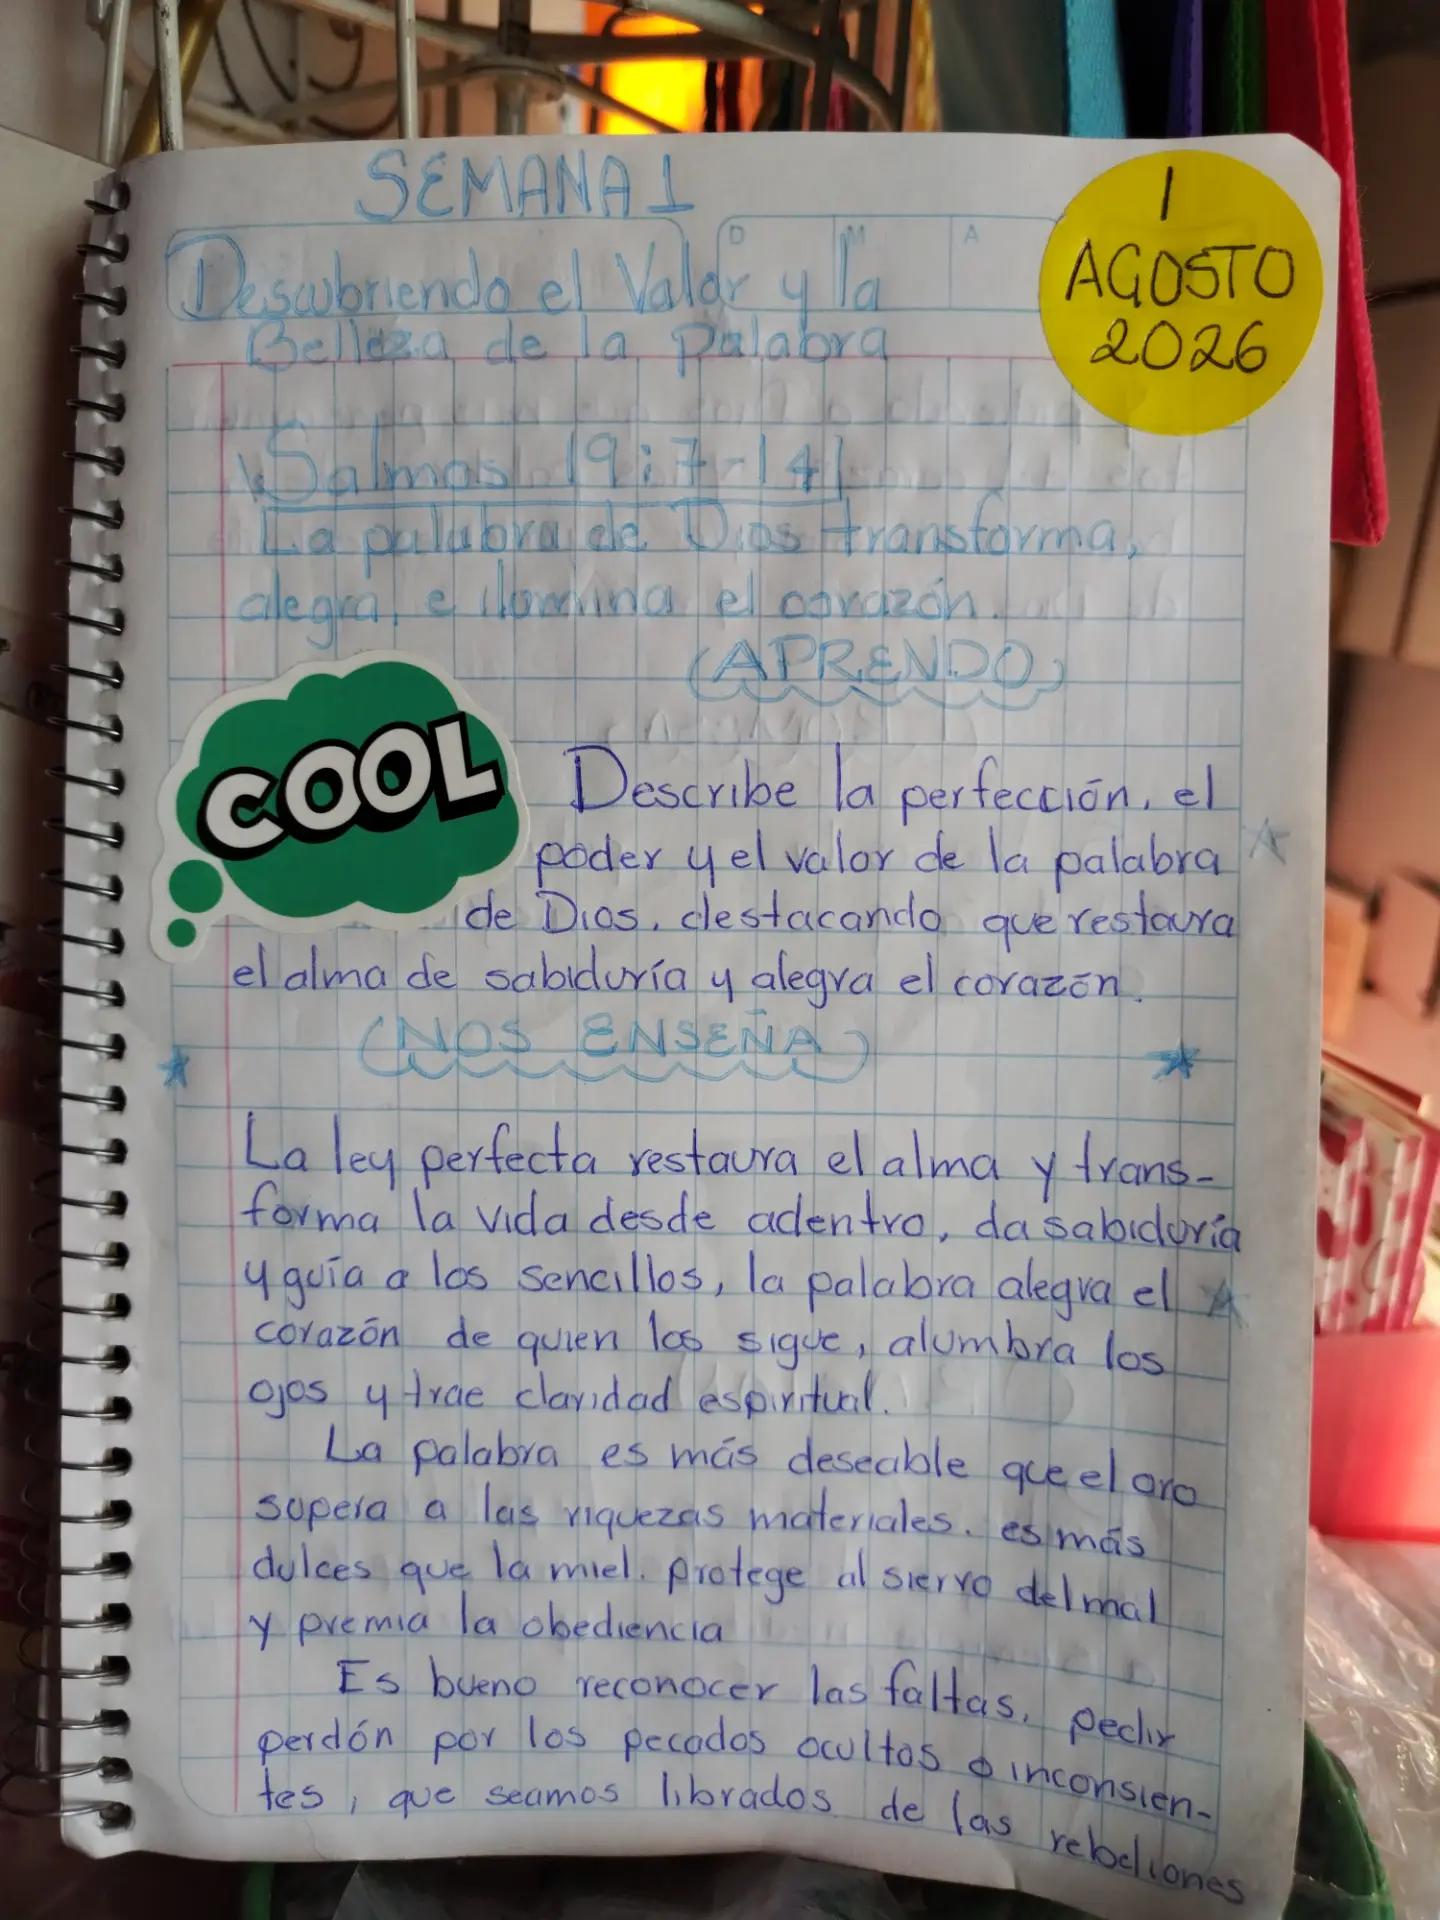 SEMANA 1
1
AGOSTO
2026
D M A
Descubriendo el Valor y la
Belleza de la palabra
Salmos 19:7-14
La palabra de Dios transforma,
alegra, e ilumina el corazón.
(APRENDO)
COOL
Describe la perfección, el
poder y el valor de la palabra
de Dios, destacando que restaura
el alma de sabiduría y alegra el corazón.
(NOS ENSEÑA)
La ley perfecta restaura el alma y trans-
forma la vida desde adentro, da sabiduría
y guía a los sencillos, la palabra alegra el
corazón de quien las sigue, alumbra los
ojos y trae claridad espiritual.
La palabra es más deseable que el oro
supera a las riquezas materiales. es más
dulces que la miel. protege al siervo del mal
y premia la obediencia
Es bueno reconocer las faltas, pedir
perdón por los pecados ocultos o inconsien-
tes, que seamos librados de las rebeliones